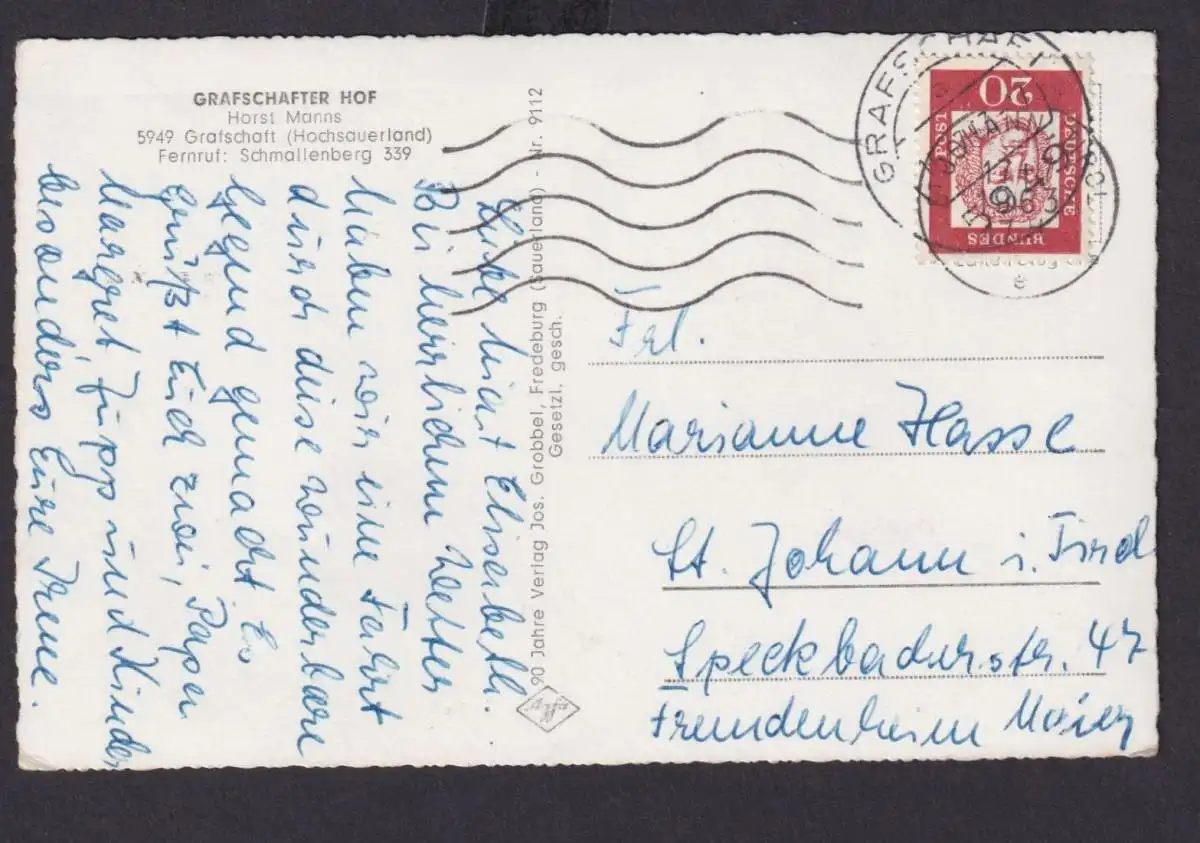 GRAFSCHAFTER HOF
Horst Manns
5949 Grafschaft (Hochsauerland)
Fernruf: Schmallenberg 339
Liebe Tient Eliserbeth.
Bei herrlichem Wetter
haben wir eine Fahrt
durch diese wunderbare
Gegend gemacht. Es
grüßt Euch zwei, Papa
Margret Jupp und Kinder
besonders Eure Irene.
90 Jahre Verlag Jos. Grobbel, Fredeburg (Sauerland) - Nr. 9112
Gesetzl. gesch.
Agfa
GRAFSCHAFT
963
e
20
DEUTSCHE
BUNDES
POST
Frl.
Marianne Hasse
St. Johann i. Tirol
Speckbacherstr. 47
Fremdenheim Maier